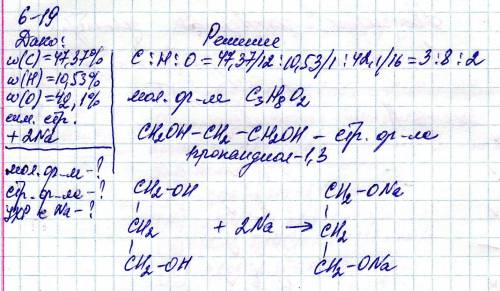 6-19
Дано:
Решение
w(C)=47,37%
w(H)=10,53%
w(O)=42,1%
сим. стр.
+2Na
мол. ф-ла-?
стр. ф-ла-?
УХР с Na-?
C:H:O=47,37/12:10,53/1:42,1/16=3:8:2
мол. ф-ла C3H8O2
CH2OH-CH2-CH2OH - стр. ф-ла
пропандиол-1,3
CH2-OH
CH2
CH2-OH
+ 2Na →
CH2-ONa
CH2
CH2-ONa